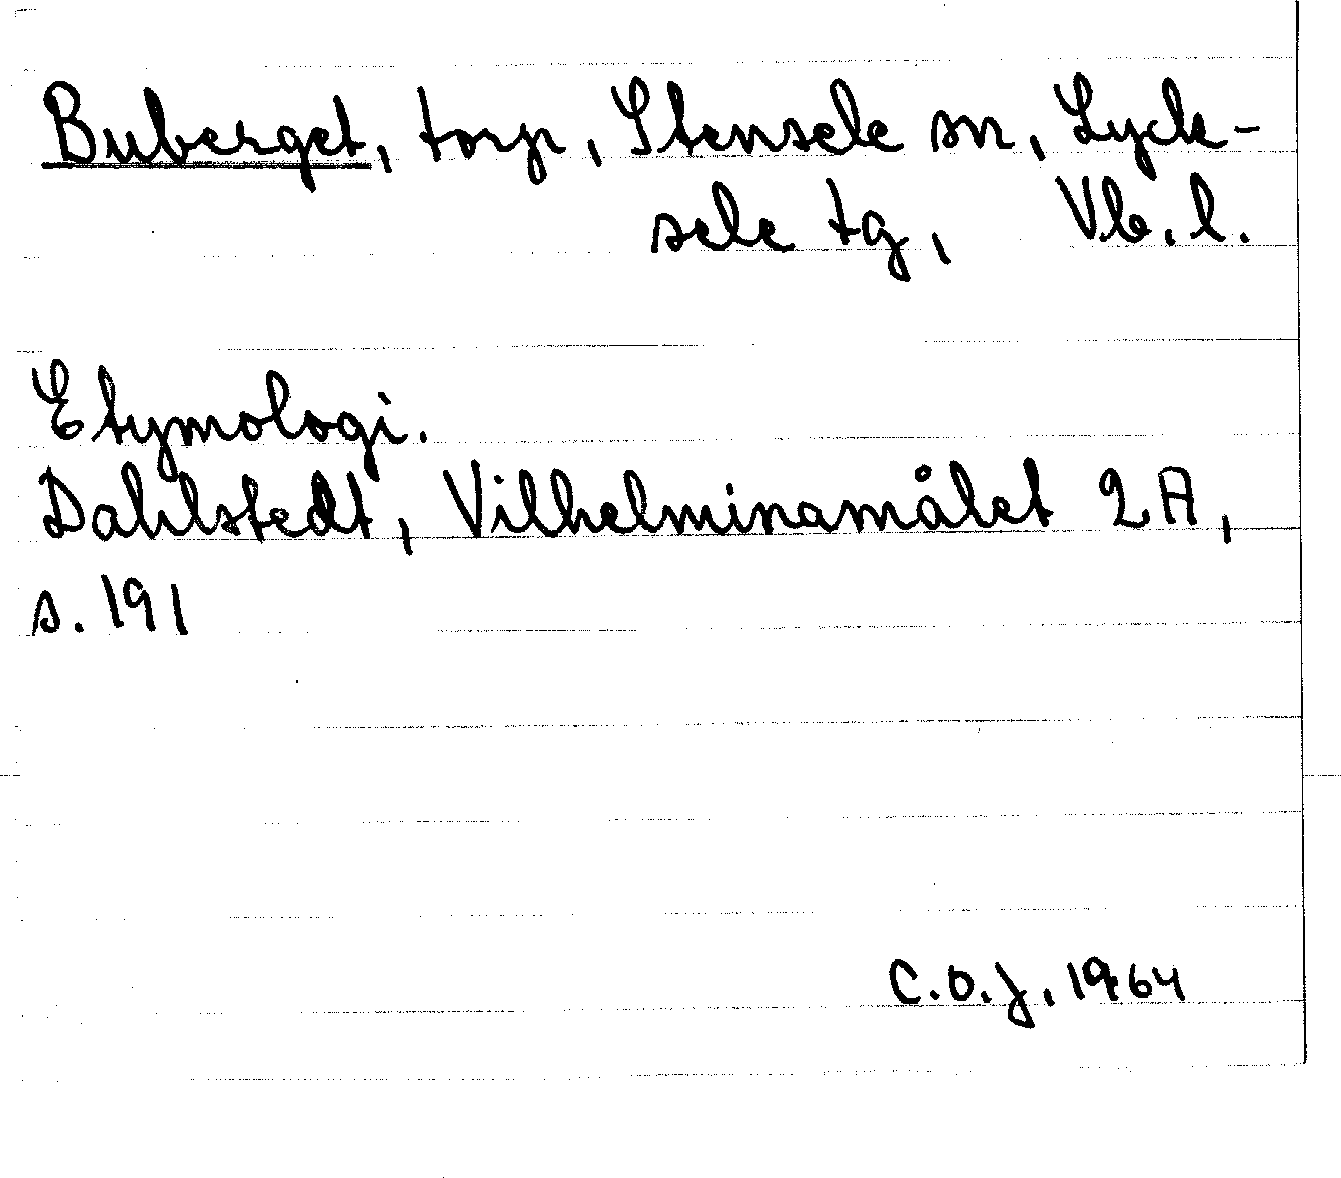 Buberget, torp, Stensele sn, Lyck-
sele tg, Vb. l.
Etymologi.
Dahlstedt, Vilhelminamålet 2A,
s. 191
C.O.J. 1964